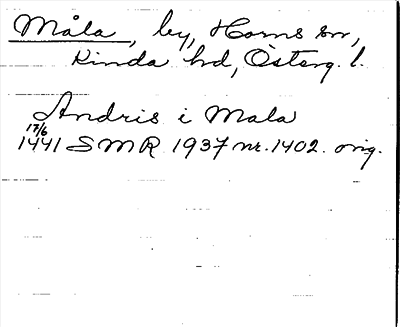 Måla, by, Horns sn,
Kinda hd, Österg. l.
Andris i Mala
17/6
1441 SMR 1937 nr. 1402. orig.